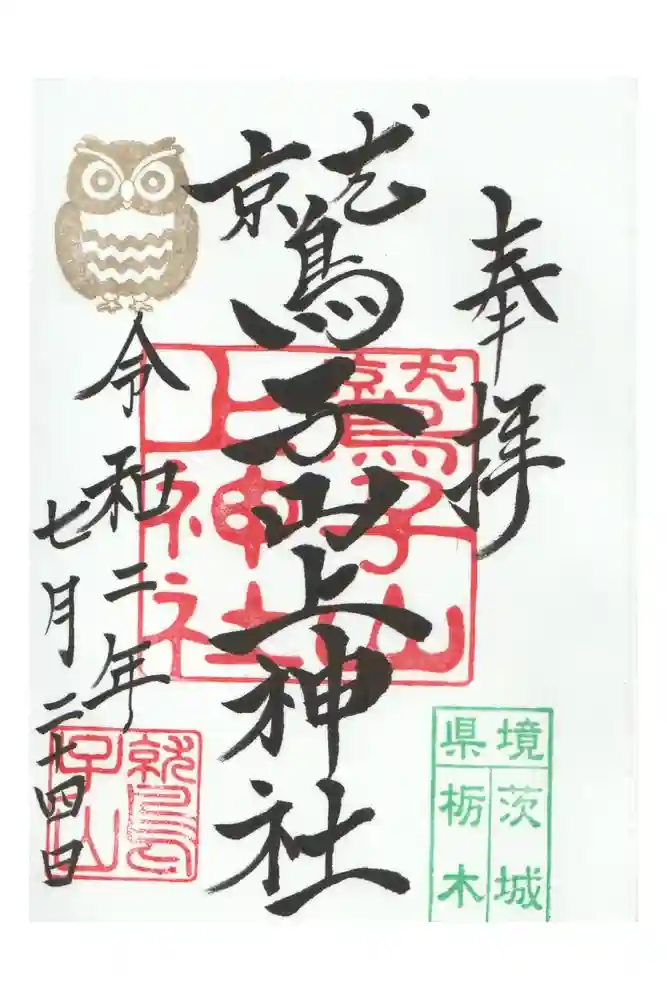 奉拝
鷲子山上神社
令和二年
七月二十四日
鷲子山
上神社
鷲
子山
県境
茨城
栃木